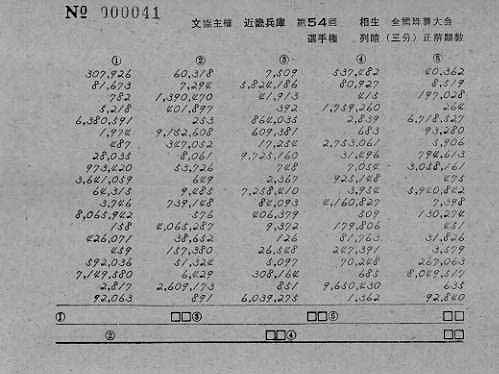 № 000041
文協主権 近畿兵庫 第54回 相生 全國珠算大会
選手権 (三分)
① ② ③ ④ ⑤
307,926 60,318 7,509 537,482 40,362
81,673 7,294 5,824,186 80,927 8,519
782 1,390,470 41,913 415 197,028
5,218 401,897 392 1,759,260 264
6,380,591 253 864,035 2,839 6,718,527
1,974 9,152,608 609,381 683 93,280
487 347,052 17,254 2,753,061 5,906
28,035 8,061 9,725,160 31,496 794,613
973,420 53,726 748 7,054 3,058,161
3,641,059 649 2,567 925,148 475
64,315 9,485 7,258,410 3,954 5,940,842
3,746 739,148 84,093 4,160,827 7,398
8,065,942 576 406,379 509 130,274
158 4,065,287 9,372 179,806 451
426,071 38,652 126 81,763 31,826
459 157,380 26,548 247,391 3,579
592,036 51,324 5,097 70,248 267,063
7,149,580 6,429 308,164 685 8,049,517
2,817 2,609,173 851 9,650,430 635
92,063 891 6,039,275 1,362 92,840
① □□③ □□⑤ □□
② □□④ □□